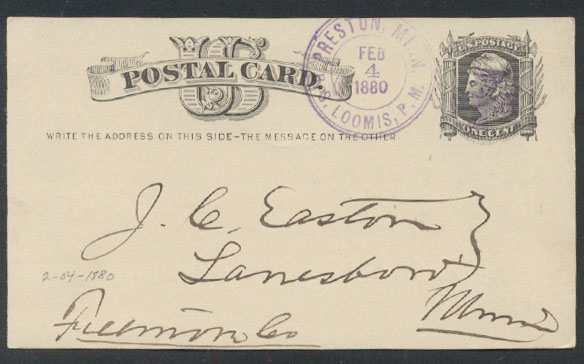 US
POSTAL CARD.
WRITE THE ADDRESS ON THIS SIDE-THE MESSAGE ON THE OTHER
PRESTON, MINN.
FEB
4
1880
LOOMIS, P.M.
U.S. POSTAGE
ONE CENT
J. C. Easton
Lanesboro
Minn
Fillmore Co
2-04-1880